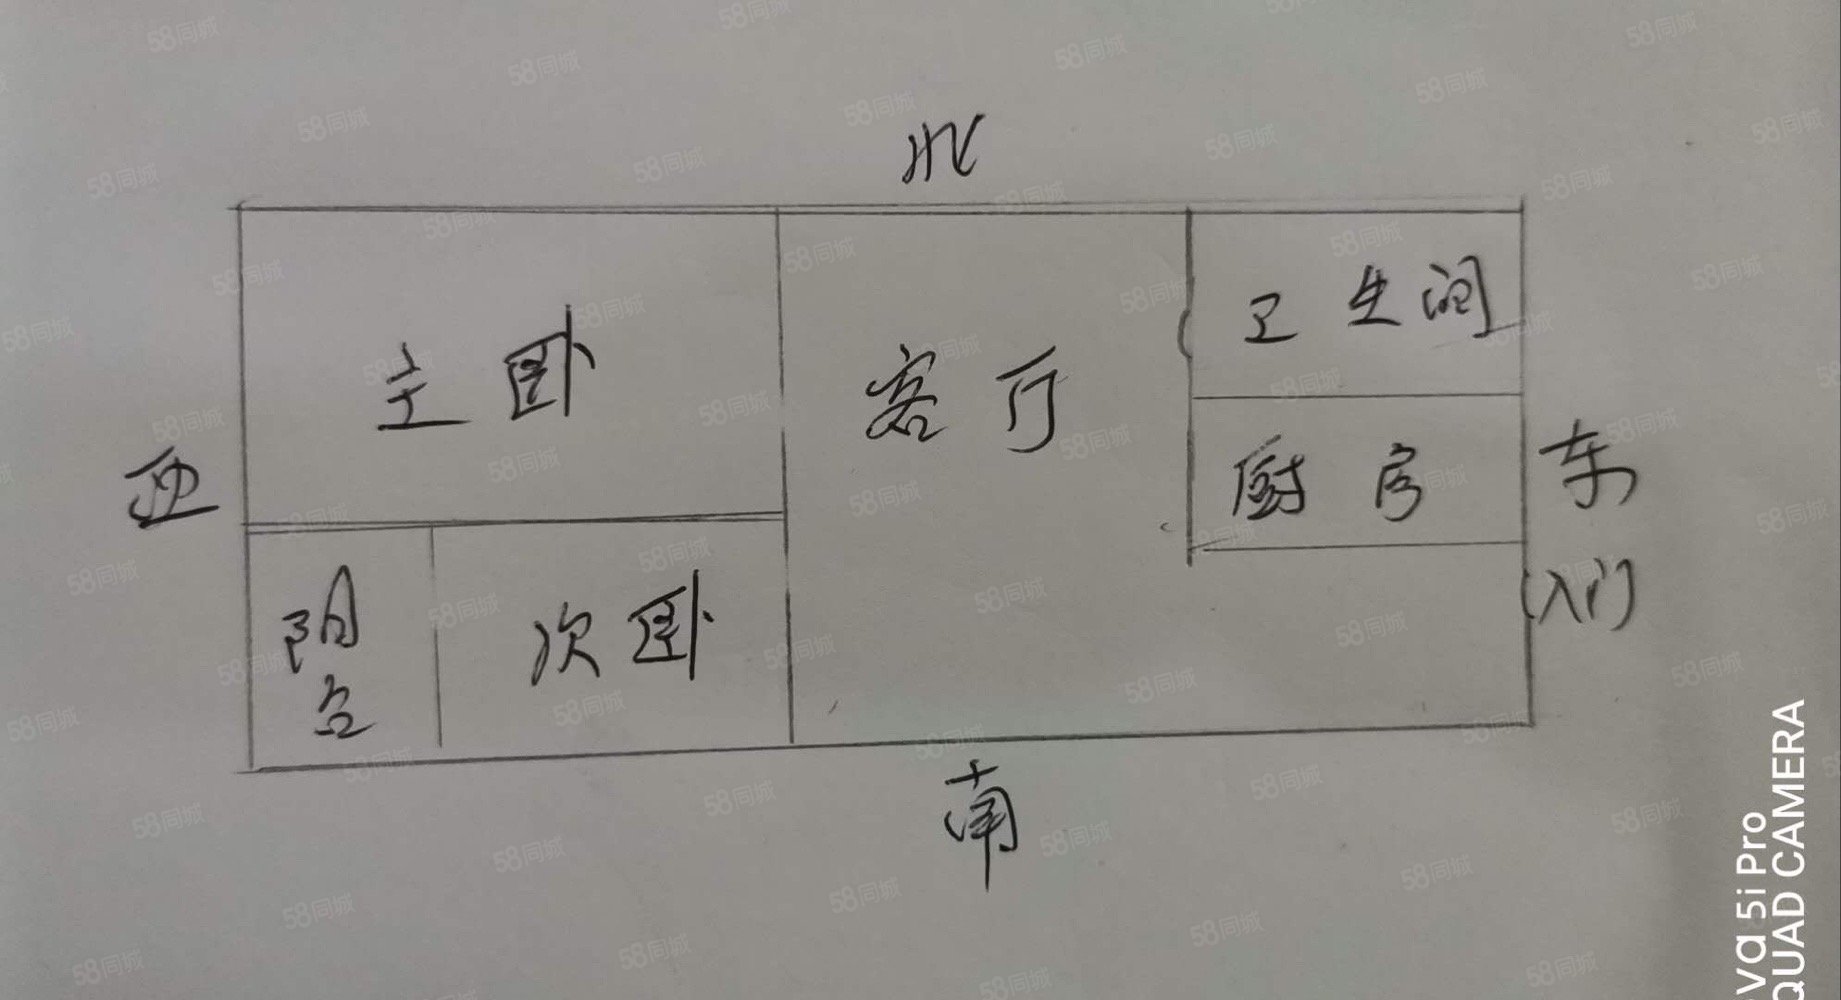 北
卫生间
主卧
客厅
西
厨房
东
阳台
次卧
入门
南
va 5i Pro
QUAD CAMERA
58同城